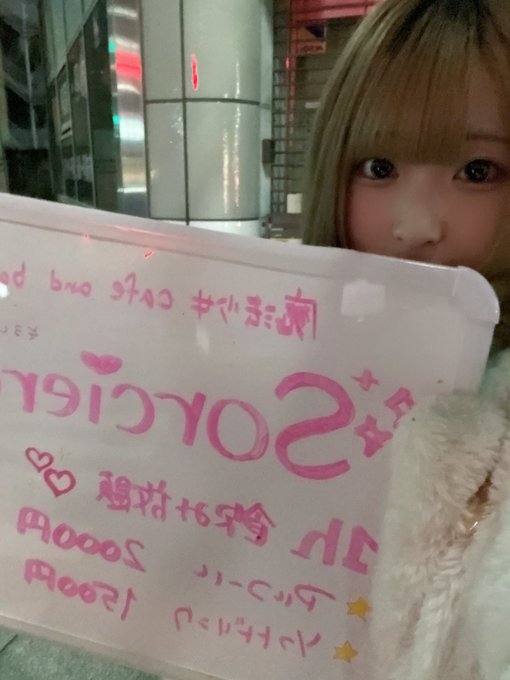 魔法少女 cafe and ba
Sorcier
1h 飲み放題
アルコール 2000円
ソフトドリンク 1500円